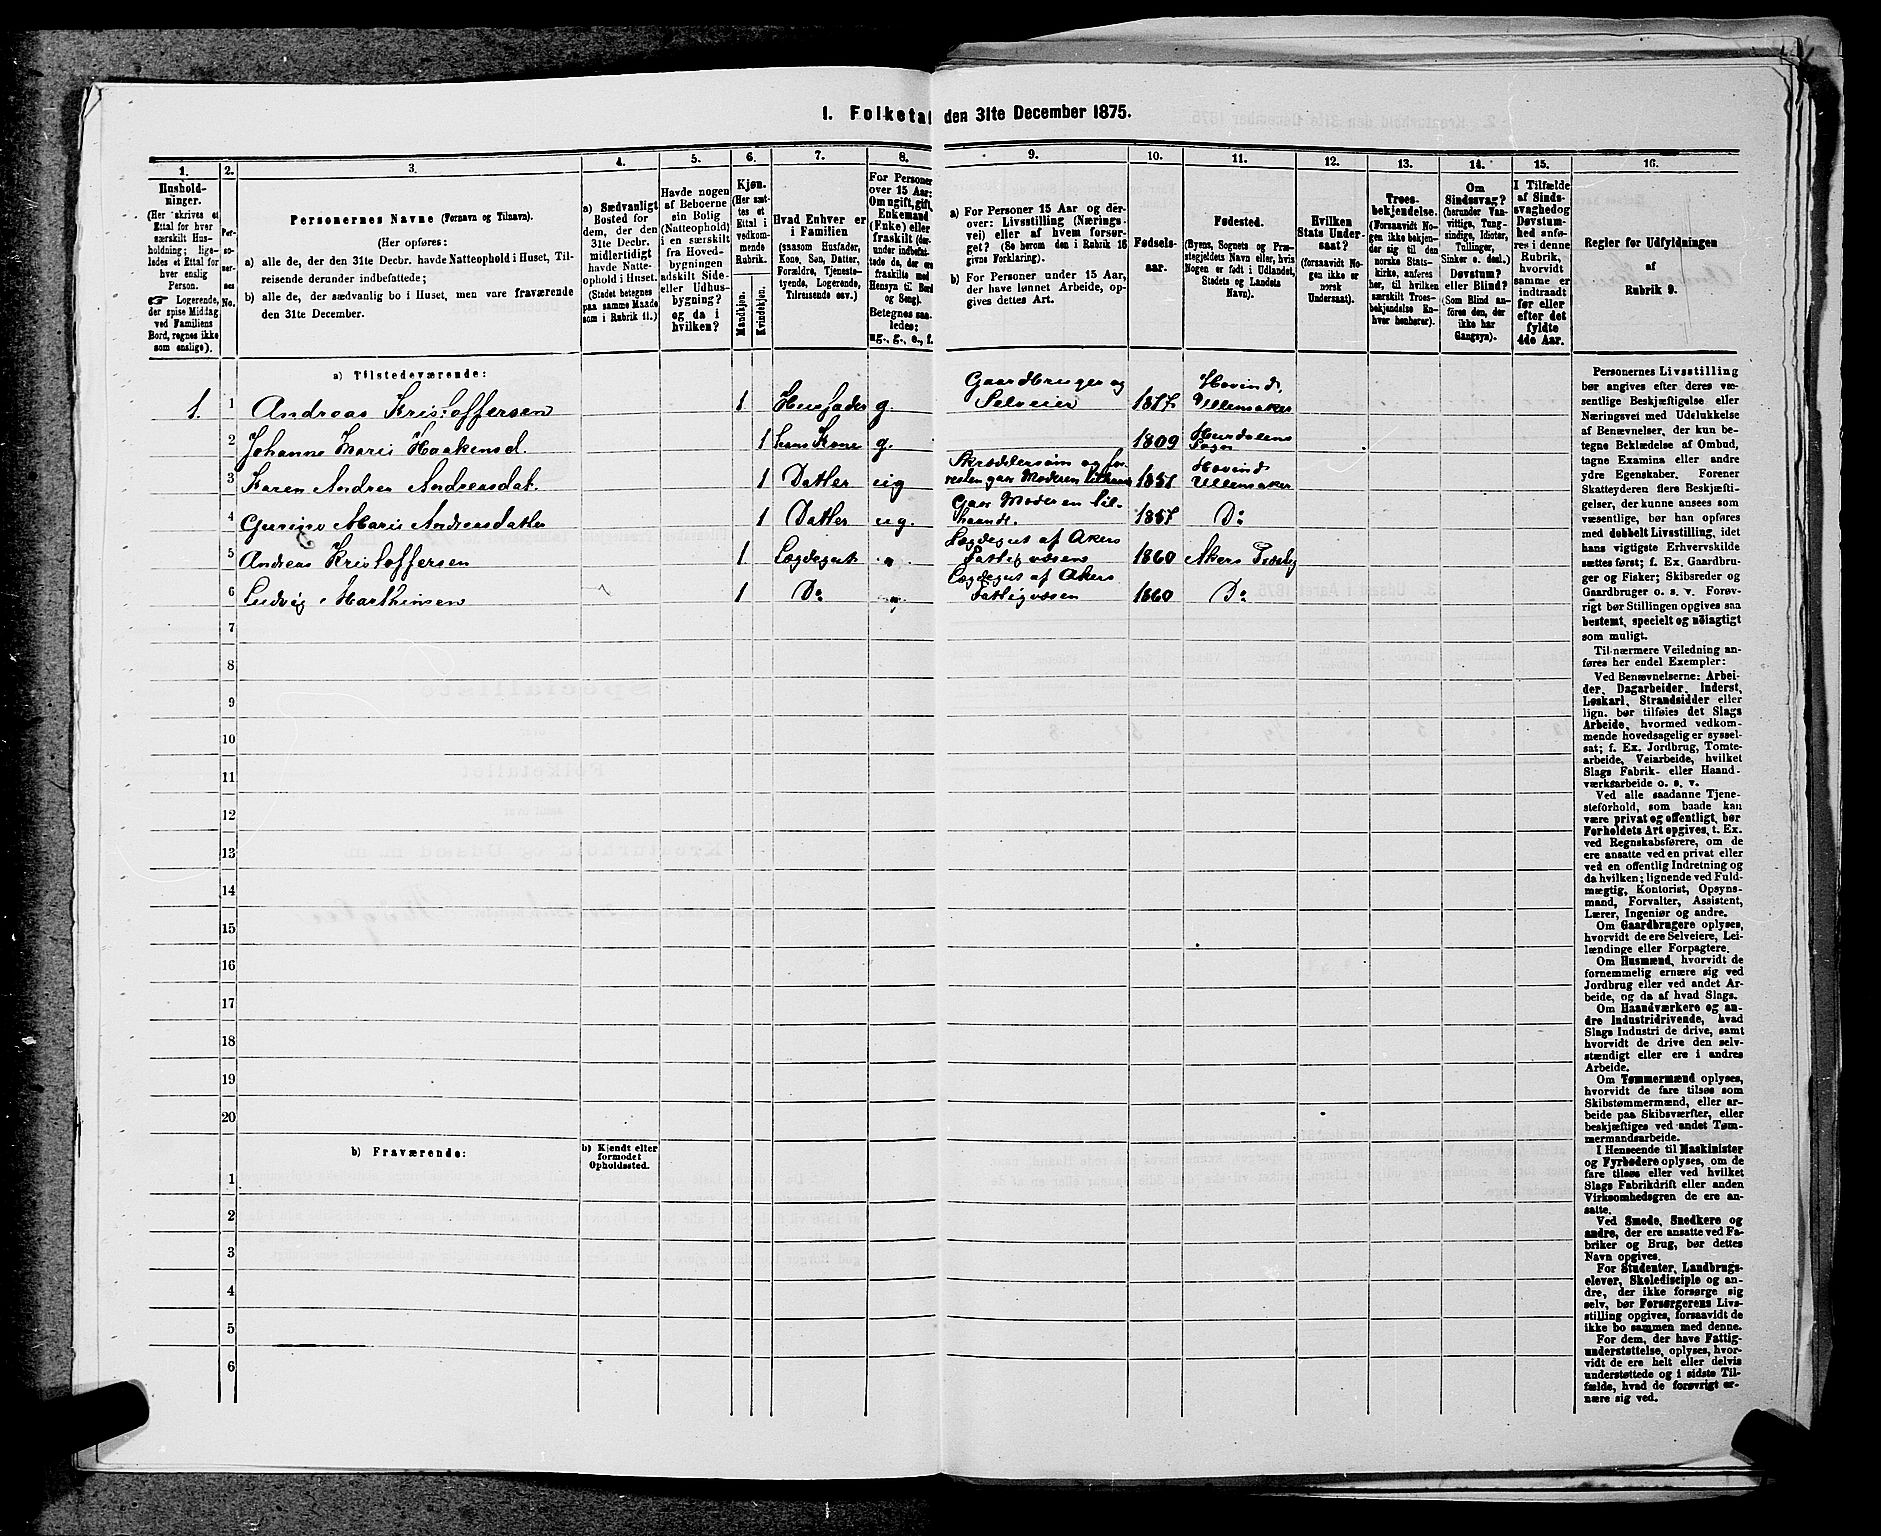 1. Folketal den 31te December 1875.
1. 2. 3. 4. 5. 6. 7. 8. 9. 10. 11. 12. 13. 14. 15. 16.
Hushold-
ninger.
(Her skrives et
Ettal for hver
særskilt Hus-
holdning; lige-
ledes et Ettal for
hver enslig
Person.
Logerende,
der spise Middag
ved Familiens
Bord, regnes ikke
som enslige).
Per-
so-
ner-
nes
No.
Personernes Navne (Fornavn og Tilnavn).
(Her opføres:
a) alle de, der den 31te Decbr. havde Natteophold i Huset, Til-
reisende derunder indbefattede;
b) alle de, der sædvanlig bo i Huset, men vare fraværende
den 31te December.
a) Sædvanligt
Bosted for
dem, der den
31te Decbr.
midlertidigt
havde Natte-
ophold i Huset.
(Stedet betegnes
paa samme Maade
som i Rubrik 11.)
Havde nogen
af Beboerne
sin Bolig
(Natteophold)
i en særskilt
fra Hoved-
bygningen
adskilt Side-
eller Udhus-
bygning? og da i
hvilken?
Kjøn.
(Her sæt-
tes et
Ettal i
vedkom-
mende
Rubrik.
Mandkjøn.
Kvindekjøn.
Hvad Enhver er
i Familien
(saasom Husfader,
Kone, Søn, Datter,
Forældre, Tjeneste-
tyende, Logerende,
Tilreisende osv.)
For Personer
over 15 Aar:
Om ugift, gift,
Enkemand
(Enke) eller
fraskilt (der-
under indbefat-
tede da, der ere
fraskilte med
Hensyn til Bord
og Seng).
Betegnes saa-
ledes:
ug., g., e., f.
a) For Personer 15 Aar og der-
over: Livsstilling (Nærings-
vei) eller af hvem forsør-
get? (Se herom den i Rubrik 16
givne Forklaring).
b) For Personer under 15 Aar,
der have lønnet Arbeide, op-
gives dettes Art.
Fødsels-
aar.
Fødested.
(Byens, Sognets og Præ-
stegjeldets Navn eller, hvis
Nogen er født i Udlandet,
Stedets og Landets
Navn).
Hvilken
Stats Under-
saat?
(forsaavidt No-
gen ikke er
norsk
Undersaat).
Troes-
bekjendelse.
(Forsaavidt No-
gen ikke bekjen-
der sig til den
norske Stats-
kirke, anføres
her, til hvilken
særskilt Troes-
bekjendelse En-
hver henhører).
Om
Sindssvag?
(herunder Van-
vittige, Tung-
sindige, Idioter,
Tullinger,
Sinker o. desl.)
Døvstum?
eller Blind?
(Som Blind an-
føres den, der
ikke har
Gangsyn).
I Tilfælde
af Sinds-
svaghed og
Døvstum-
hed anfø-
res i denne
Rubrik,
hvorvidt
samme er
indtraadt
før eller
efter det
fyldte
4de Aar.
Regler for Udfyldningen
af
Rubrik 9.
a) Tilstedeværende:
1. 1 Andreas Kristoffersen 1 Husfader g. Gaardbruger og Selveier 1817 Hovind, Ullensaker
2 Johanne Marie Haakensd. 1 hans Kone g. 1809 Hurdalens Sogn
3 Karen Andrea Andreasdat. 1 Datter ug Skræddersøm og for-resten gaar Moderen tilhaande 1851 Hovind Ullensaker
4 Gurine Marie Andreasdatter 1 Datter ug. Gaar Moderen til-haande. 1857 Do
5 Andreas Kristoffersen 1. Lægdegut " Lægdegut af Akers Fattigvæsen 1860 Akers Præstg
6 Ludvig Marthinsen 1 Do " Lægdegut af Akers Fattigvæsen 1860 Do
7
8
9
10
11
12
13
14
15
16
17
18
19
20
b) Fraværende:
b) Kjendt eller
formodet
Opholdssted.
1
2
3
4
5
6
Personernes Livsstilling
bør angives efter deres væ-
sentlige Beskjæftigelse eller
Næringsvei med Udelukkelse
af Benævnelser, der kun be-
tegne Beklædelse af Ombud,
tagne Examina eller andre
ydre Egenskaber. Forener
Skatteyderen flere Beskjæfti-
gelser, der kunne ansees som
væsentlige, bør han opføres
med dobbelt Livsstilling, idet
hans vigtigste Erhvervskilde
sættes først; f. Ex. Gaardbru-
ger og Fisker; Skibsreder og
Gaardbruger o. s. v. Forøv-
rigt bør Stillingen opgives saa
bestemt, specielt og nøiagtigt
som muligt.
Til nærmere Veiledning an-
føres her endel Exempler:
Ved Benævnelserne: Arbei-
der, Dagarbeider, Inderst,
Løskarl, Strandsidder eller
lign. bør tilføies det Slags
Arbeide, hvormed vedkom-
mende hovedsagelig er syssel-
sat; f. Ex. Jordbrug, Tomte-
arbeide, Veiarbeide, hvilket
Slags Fabrik- eller Haand-
værksarbeide o. s. v.
Ved alle saadanne Tjene-
steforhold, som baade kan
være privat og offentligt, bør
Forholdets Art opgives, t. Ex.
ved Regnskabsførere, om de
ere ansatte ved en privat eller
ved en offentlig Indretning og
da hvilken; lignende ved Fuld-
mægtig, Kontorist, Opsyns-
mand, Forvalter, Assistent,
Lærer, Ingeniør og andre.
Om Gaardbrugere oplyses,
hvorvidt de ere Selveiere, Lei-
lændinge eller Forpagtere.
Om Husmænd, hvorvidt de
fornemmelig ernære sig ved
Jordbrug eller ved andet Ar-
beide, og da af hvad Slags.
Om Haandværkere og an-
dre Industridrivende, hvad
Slags Industri de drive, samt
hvorvidt de drive den selv-
stændigt eller ere i andres
Arbeide.
Om Tømmermænd oplyses,
hvorvidt de fare tilsøs som
Skibstømmermænd, eller ar-
beide paa Skibsværfter, eller
beskjæftiges ved andet Tøm-
mermandsarbeide.
I Henseende til Maskinister
og Fyrbødere oplyses, om de
fare tilsøs eller ved hvilket
Slags Fabrikdrift eller anden
Virksomhedsgren de ere an-
satte.
Ved Smede, Snedkere og
andre, der ere ansatte ved Fa-
briker og Brug, bør dettes
Navn opgives.
For Studenter, Landbrugs-
elever, Skoledisciple og an-
dre, der ikke forsørge sig
selv, bør Forsørgerens Livs-
stilling opgives, forsaavidt de
ikke bo sammen med denne.
For dem, der have Fattig-
understøttelse, oplyses, hvor-
vidt de ere helt eller delvis
understøttede og i sidste Til-
fælde, hvad de forøvrigt er-
nære sig ved.